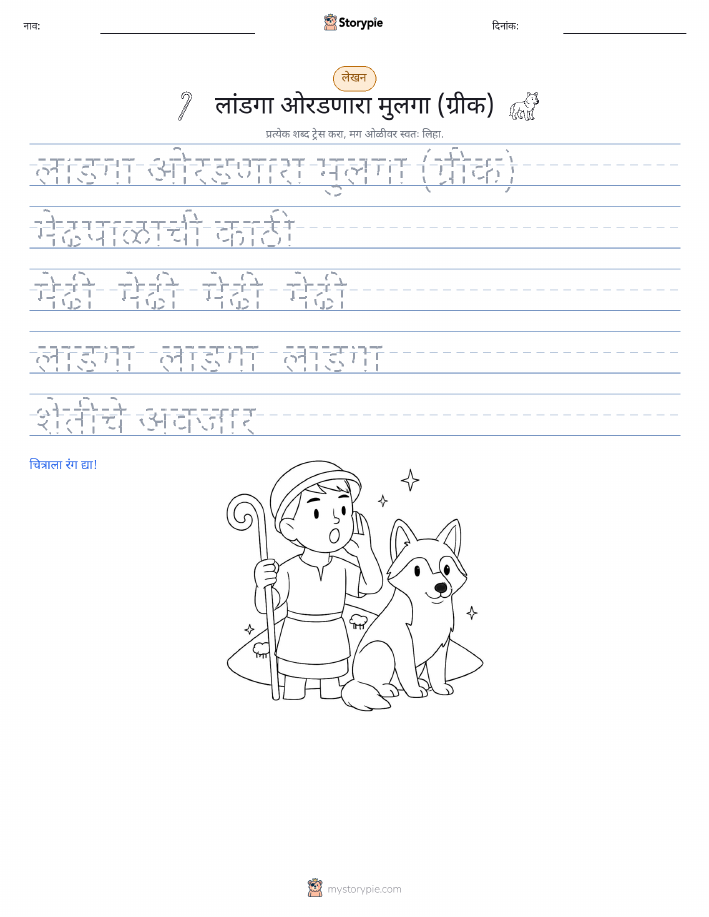 नाव:
Storypie
दिनांक:
लेखन
लांडगा ओरडणारा मुलगा (ग्रीक)
प्रत्येक शब्द ट्रेस करा, मग ओळीवर स्वतः लिहा.
लाडगा ओरडणारा मुलगा (ग्रीक)
मेंढपाळाची काठी
मेंढी मेंढी मेंढी मेंढी
लाडगा लाडगा लाडगा
शेतीचे अवजार
चित्राला रंग द्या!
mystorypie.com